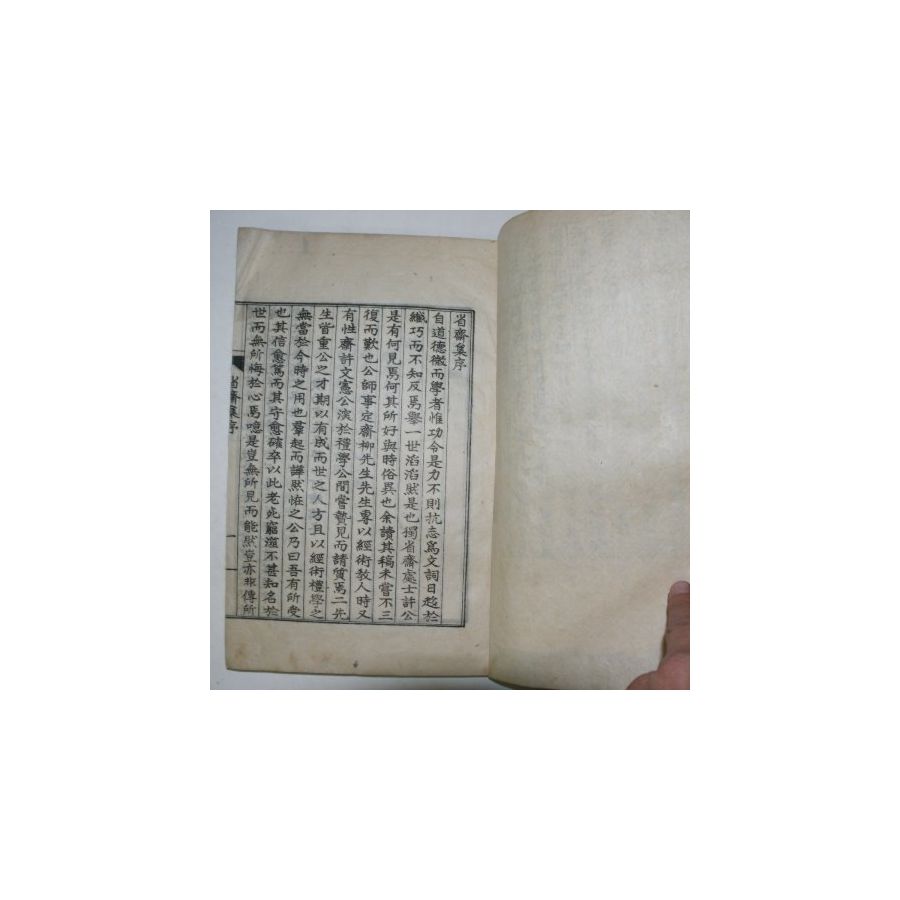 省齋集序
自道德微而學者惟功令是力不則抗志爲文詞日趍於
纖巧而不知反焉擧一世滔滔然是也獨省齋處士許公
是有何見焉何其所好與時俗異也余讀其稿未嘗不三
復而歎也公師事定齋柳先生先生專以經術敎人時又
有性齋許文憲公演於禮學公間嘗贄見而請質焉二先
生皆重公之才期以有成而世之人方且以經術禮學之
無當於今時之用也羣起而譁然恠之公乃曰吾有所受
也其信愈篤而其守愈確卒以此老死窮 不甚知名於
世而無所悔於心焉噫是豈無所見而能然豈亦非傳所
省齋集序
一